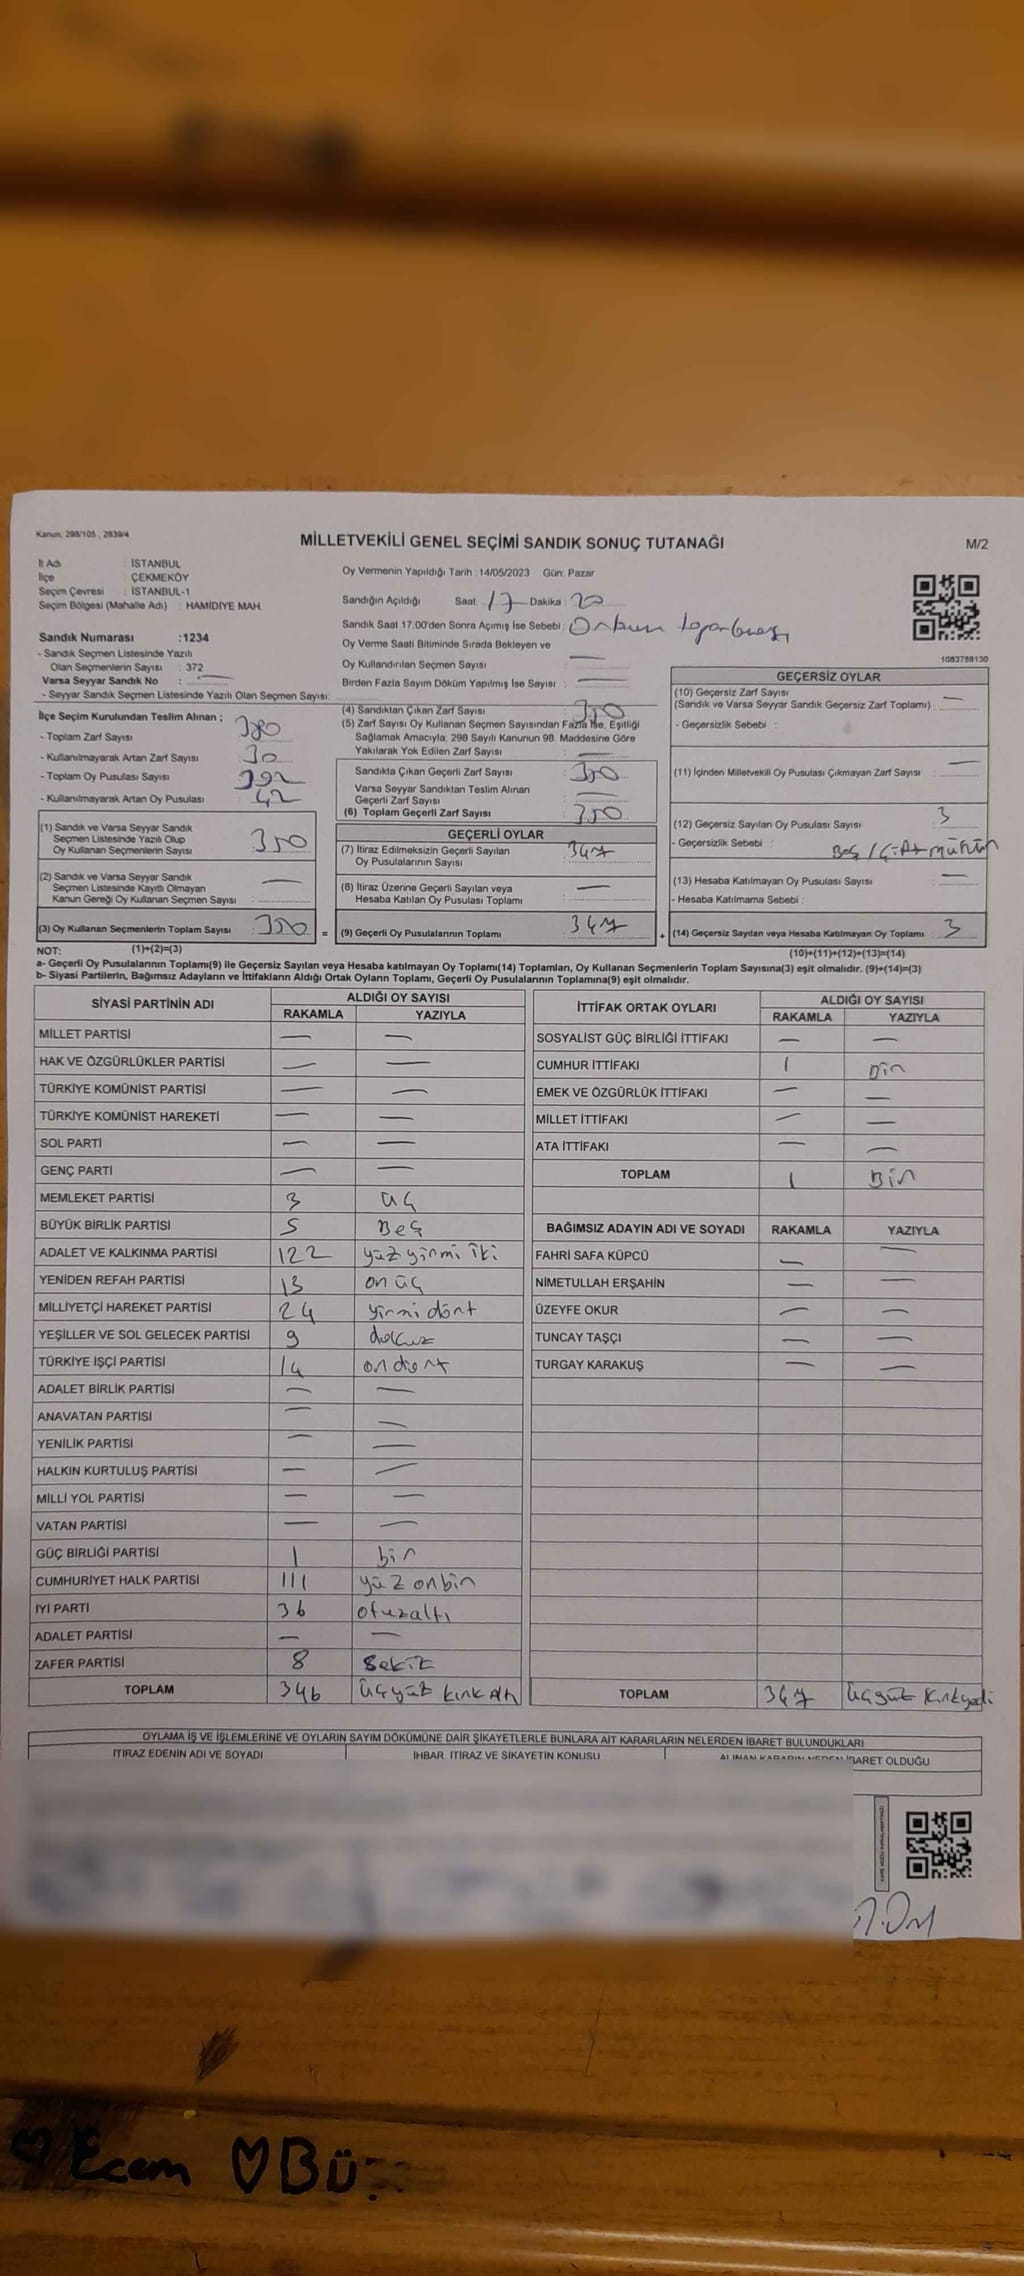 Kanun, 298/105 , 2839/4
MİLLETVEKİLİ GENEL SEÇİMİ SANDIK SONUÇ TUTANAĞI
M/2
İl Adı : İSTANBUL
İlçe : ÇEKMEKÖY
Seçim Çevresi : İSTANBUL-1
Seçim Bölgesi (Mahalle Adı) : HAMİDİYE MAH.
Oy Vermenin Yapıldığı Tarih :14/05/2023 Gün: Pazar
Sandığın Açıldığı Saat 17 Dakika : 20
Sandık Saat 17:00'den Sonra Açımış İse Sebebi :
Oy Verme Saati Bitiminde Sırada Bekleyen ve
Oy Kullandırılan Seçmen Sayısı : —
Birden Fazla Sayım Döküm Yapılmış İse Sayısı : —
1083788130
Sandık Numarası :1234
- Sandık Seçmen Listesinde Yazılı
Olan Seçmenlerin Sayısı : 372
Varsa Seyyar Sandık No : —
- Seyyar Sandık Seçmen Listesinde Yazılı Olan Seçmen Sayısı:
İlçe Seçim Kurulundan Teslim Alınan ;
- Toplam Zarf Sayısı 380
- Kullanılmayarak Artan Zarf Sayısı 30
- Toplam Oy Pusulası Sayısı 392
- Kullanılmayarak Artan Oy Pusulası 42
(1) Sandık ve Varsa Seyyar Sandık
Seçmen Listesinde Yazılı Olup
Oy Kullanan Seçmenlerin Sayısı : 350
(2) Sandık ve Varsa Seyyar Sandık
Seçmen Listesinde Kayıtlı Olmayan
Kanun Gereği Oy Kullanan Seçmen Sayısı : —
(3) Oy Kullanan Seçmenlerin Toplam Sayısı : 350 =
(4) Sandıktan Çıkan Zarf Sayısı : 350
(5) Zarf Sayısı Oy Kullanan Seçmen Sayısından Fazla İse, Eşitliği
Sağlamak Amacıyla; 298 Sayılı Kanunun 98. Maddesine Göre
Yakılarak Yok Edilen Zarf Sayısı : —
Sandıkta Çıkan Geçerli Zarf Sayısı : 350
Varsa Seyyar Sandıktan Teslim Alınan
Geçerli Zarf Sayısı : —
(6) Toplam Geçerli Zarf Sayısı : 350
GEÇERLİ OYLAR
(7) İtiraz Edilmeksizin Geçerli Sayılan
Oy Pusulalarının Sayısı : 347
(8) İtiraz Üzerine Geçerli Sayılan veya
Hesaba Katılan Oy Pusulası Toplamı : —
(9) Geçerli Oy Pusulalarının Toplamı : 347 +
GEÇERSİZ OYLAR
(10) Geçersiz Zarf Sayısı
(Sandık ve Varsa Seyyar Sandık Geçersiz Zarf Toplamı) : —
- Geçersizlik Sebebi :
(11) İçinden Milletvekili Oy Pusulası Çıkmayan Zarf Sayısı : —
(12) Geçersiz Sayılan Oy Pusulası Sayısı : 3
- Geçersizlik Sebebi : Boş / Çift mühür
(13) Hesaba Katılmayan Oy Pusulası Sayısı : —
- Hesaba Katılmama Sebebi :
(14) Geçersiz Sayılan veya Hesaba Katılmayan Oy Toplamı : 3
NOT: (1)+(2)=(3)
(10)+(11)+(12)+(13)=(14)
a- Geçerli Oy Pusulalarının Toplamı(9) ile Geçersiz Sayılan veya Hesaba katılmayan Oy Toplamı(14) Toplamları, Oy Kullanan Seçmenlerin Toplam Sayısına(3) eşit olmalıdır. (9)+(14)=(3)
b- Siyasi Partilerin, Bağımsız Adayların ve İttifakların Aldığı Ortak Oyların Toplamı, Geçerli Oy Pusulalarının Toplamına(9) eşit olmalıdır.
SİYASİ PARTİNİN ADI ALDIĞI OY SAYISI
RAKAMLA YAZIYLA
MİLLET PARTİSİ — —
HAK VE ÖZGÜRLÜKLER PARTİSİ — —
TÜRKİYE KOMÜNİST PARTİSİ — —
TÜRKİYE KOMÜNİST HAREKETİ — —
SOL PARTİ — —
GENÇ PARTİ — —
MEMLEKET PARTİSİ 3 üç
BÜYÜK BİRLİK PARTİSİ 5 Beş
ADALET VE KALKINMA PARTİSİ 122 yüz yirmi iki
YENİDEN REFAH PARTİSİ 13 on üç
MİLLİYETÇİ HAREKET PARTİSİ 24 yirmi dört
YEŞİLLER VE SOL GELECEK PARTİSİ 9 dokuz
TÜRKİYE İŞÇİ PARTİSİ 14 on dört
ADALET BİRLİK PARTİSİ — —
ANAVATAN PARTİSİ — —
YENİLİK PARTİSİ — —
HALKIN KURTULUŞ PARTİSİ — —
MİLLİ YOL PARTİSİ — —
VATAN PARTİSİ — —
GÜÇ BİRLİĞİ PARTİSİ 1 bir
CUMHURİYET HALK PARTİSİ 111 yüz onbir
İYİ PARTİ 36 otuzaltı
ADALET PARTİSİ — —
ZAFER PARTİSİ 8 Sekiz
TOPLAM 346 üçyüz kırk altı
İTTİFAK ORTAK OYLARI ALDIĞI OY SAYISI
RAKAMLA YAZIYLA
SOSYALİST GÜÇ BİRLİĞİ İTTİFAKI — —
CUMHUR İTTİFAKI 1 Bir
EMEK VE ÖZGÜRLÜK İTTİFAKI — —
MİLLET İTTİFAKI — —
ATA İTTİFAKI — —
TOPLAM 1 Bir
BAĞIMSIZ ADAYIN ADI VE SOYADI RAKAMLA YAZIYLA
FAHRİ SAFA KÜPCÜ — —
NİMETULLAH ERŞAHİN — —
ÜZEYFE OKUR — —
TUNCAY TAŞÇI — —
TURGAY KARAKUŞ — —
TOPLAM 347 üçyüz kırkyedi
OYLAMA İŞ VE İŞLEMLERİNE VE OYLARIN SAYIM DÖKÜMÜNE DAİR ŞİKAYETLERLE BUNLARA AİT KARARLARIN NELERDEN İBARET BULUNDUKLARI
İTİRAZ EDENİN ADI VE SOYADI İHBAR, İTİRAZ VE ŞİKAYETİN KONUSU ALINAN KARARIN NEDEN İBARET OLDUĞU
Ecem Bü